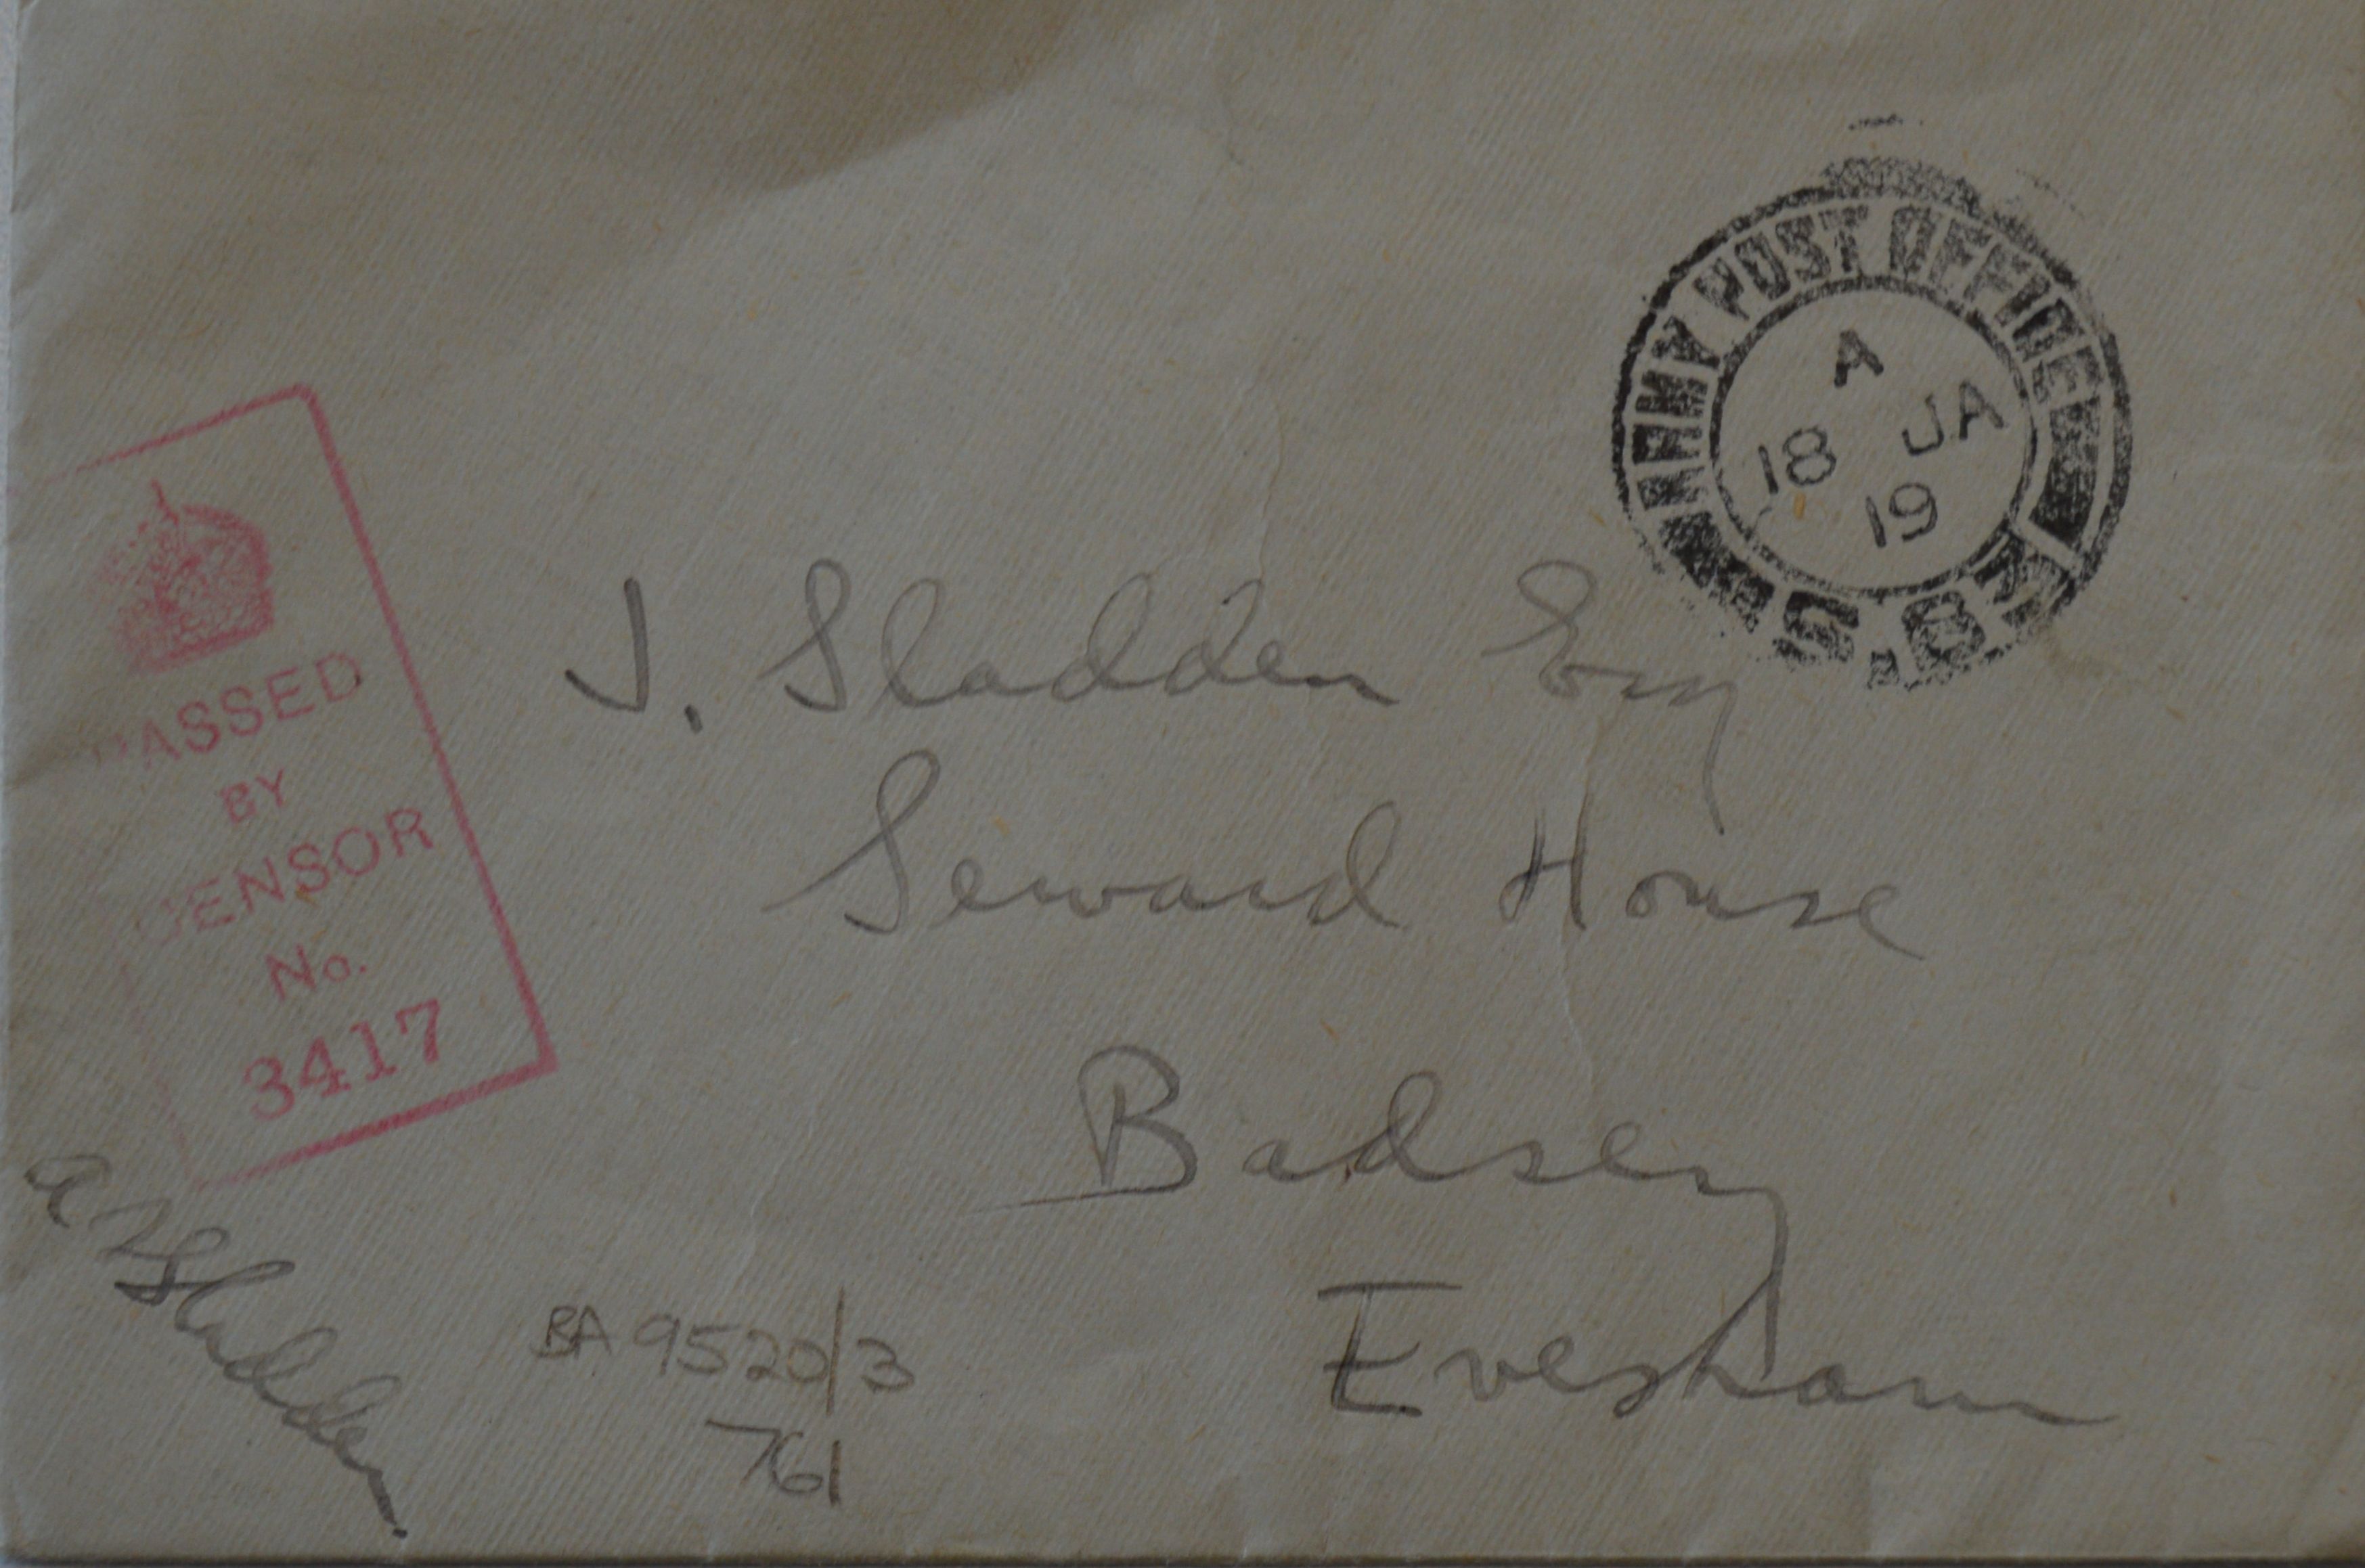 ARMY POST OFFICE
A
18 JA
19
S.B.
PASSED
BY
CENSOR
No.
3417
J. Sladden Esq
Seward House
Badsey
Evesham
Sladden.
BA 9520/3
761